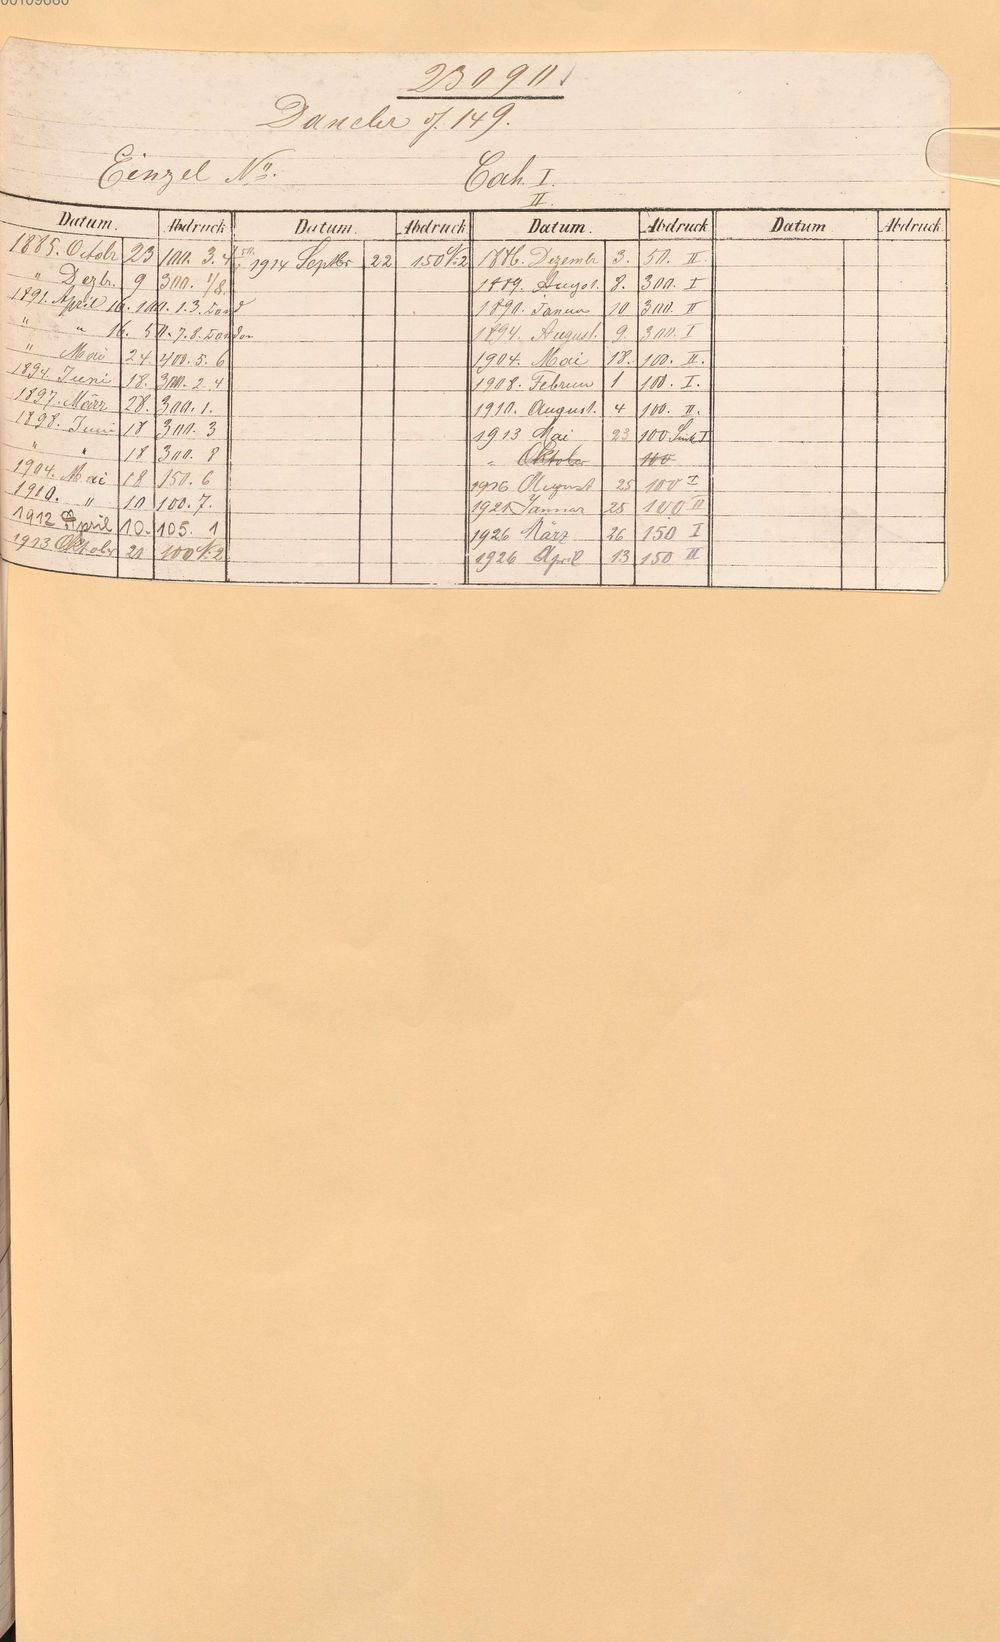 00109660
23090
Dancla op. 149.
Einzel No. Cah. I.
II.
Datum. Abdruck Datum. Abdruck Datum. Abdruck Datum Abdruck
1885. Octobr 23 100. 3. 4 1914 Septbr 22 150 No 2 1886. Dezembr 3. 50. II.
" Dezbr. 9 300. 1/8. 1889. August. 8. 300. I
1891. April 16. 100. 1. 3. Lond 1890. Januar 10 300. II
" " 16. 50. 7. 8. London 1894. August. 9. 300. I
" Mai 24. 400. 5. 6 1904. Mai 18. 100. II.
1894. Juni 18. 300. 2 4 1908. Februar 1 100. I.
1897. März 28. 300. 1. 1910. August. 4 100. II.
1898. Juni 18 300. 3 1913 Mai 23 100 I
" " 18 300. 8 " Oktober 100
1904. Mai 18 150. 6 1916 August 25 100 I
1910. " 10 100. 7. 1921 Januar 25 100 II
1912 April 10. 105. 1 1926 März 26 150 I
1913 Oktober 21 100 No 2 1926 April 13 150 II